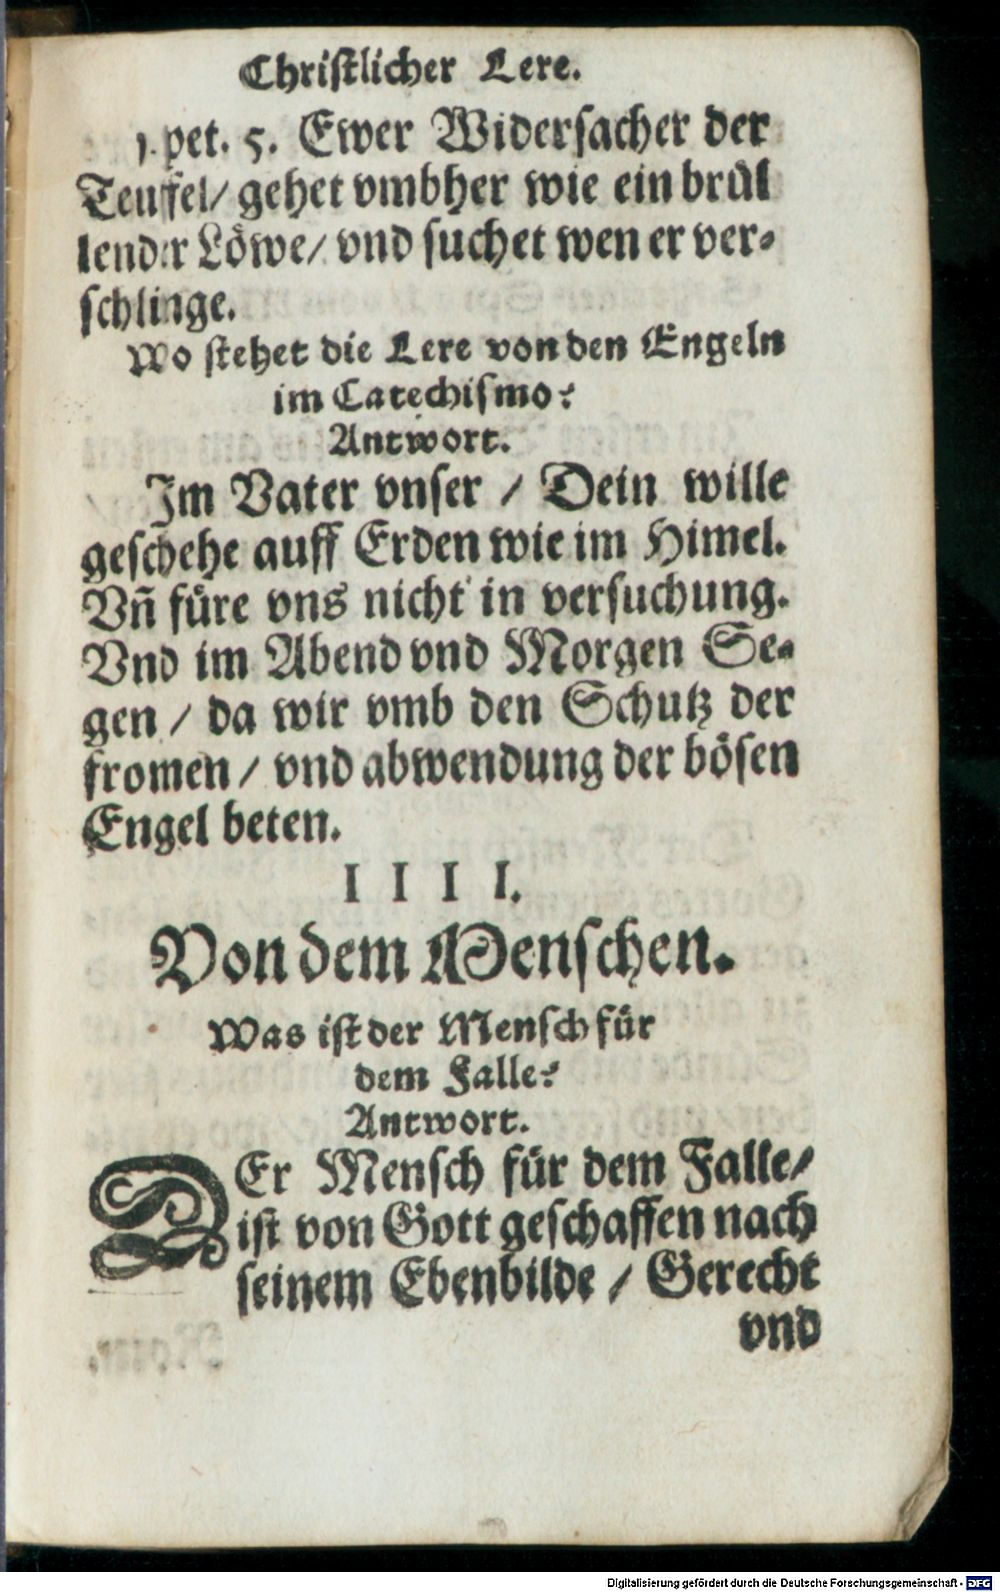 Christlicher Lere.
1. pet. 5. Ewer Widersacher der
Teuffel/ gehet vmbher wie ein brül
lender Löwe/ vnd suchet wen er ver-
schlinge.
Wo stehet die Lere von den Engeln
im Catechismo?
Antwort.
Im Vater vnser / Dein wille
geschehe auff Erden wie im Himel.
Vñ füre vns nicht in versuchung.
Vnd im Abend vnd Morgen Se-
gen / da wir vmb den Schutz der
fromen / vnd abwendung der bösen
Engel beten.
I I I I.
Von dem Menschen.
Was ist der Mensch für
dem Falle?
Antwort.
DEr Mensch für dem Falle/
ist von Gott geschaffen nach
seinem Ebenbilde / Gerecht
vnd
Digitalisierung gefördert durch die Deutsche Forschungsgemeinschaft - DFG